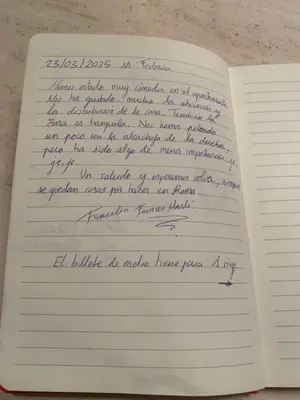 23/03/2025 sr Federico
Hemos estado muy cómodos en el apartamento
Nos ha gustado mucho la ubicación y
la distribución de la casa. También la
zona es tranquila. Nos hemos peleado
un poco con la alcachofa de la ducha,
pero ha sido algo de menor importancia je,
je, je.
Un saludo y esperamos volver, siempre
se quedan cosas por hacer en Roma
Familia
El billete de metro tiene para 1 viaje